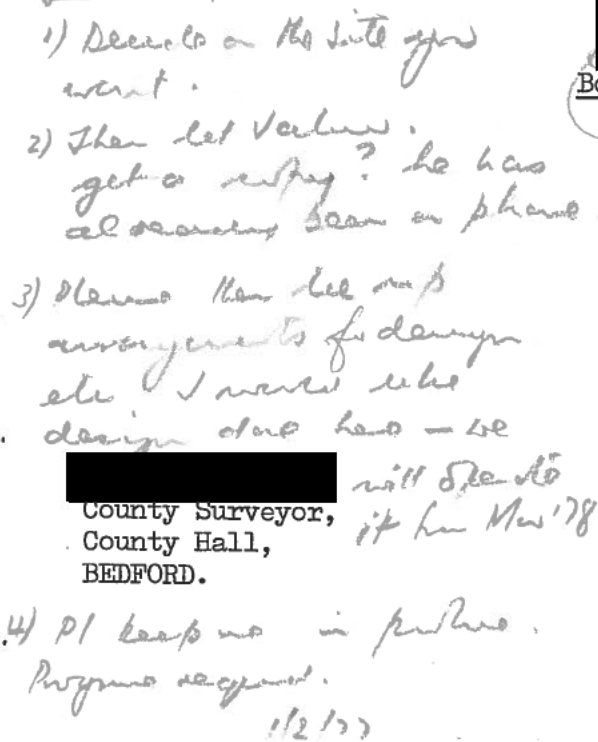 1) Decide on the site you
want.
2) Then let Valuer.
get a ? he has
already been on phone
3) Please then let me
arrangements for design
etc. I would like
design done here – we
will
County Surveyor,
it Mar '78
County Hall,
BEDFORD.
4) Pl keep me in picture.
Programme required.
1/2/77